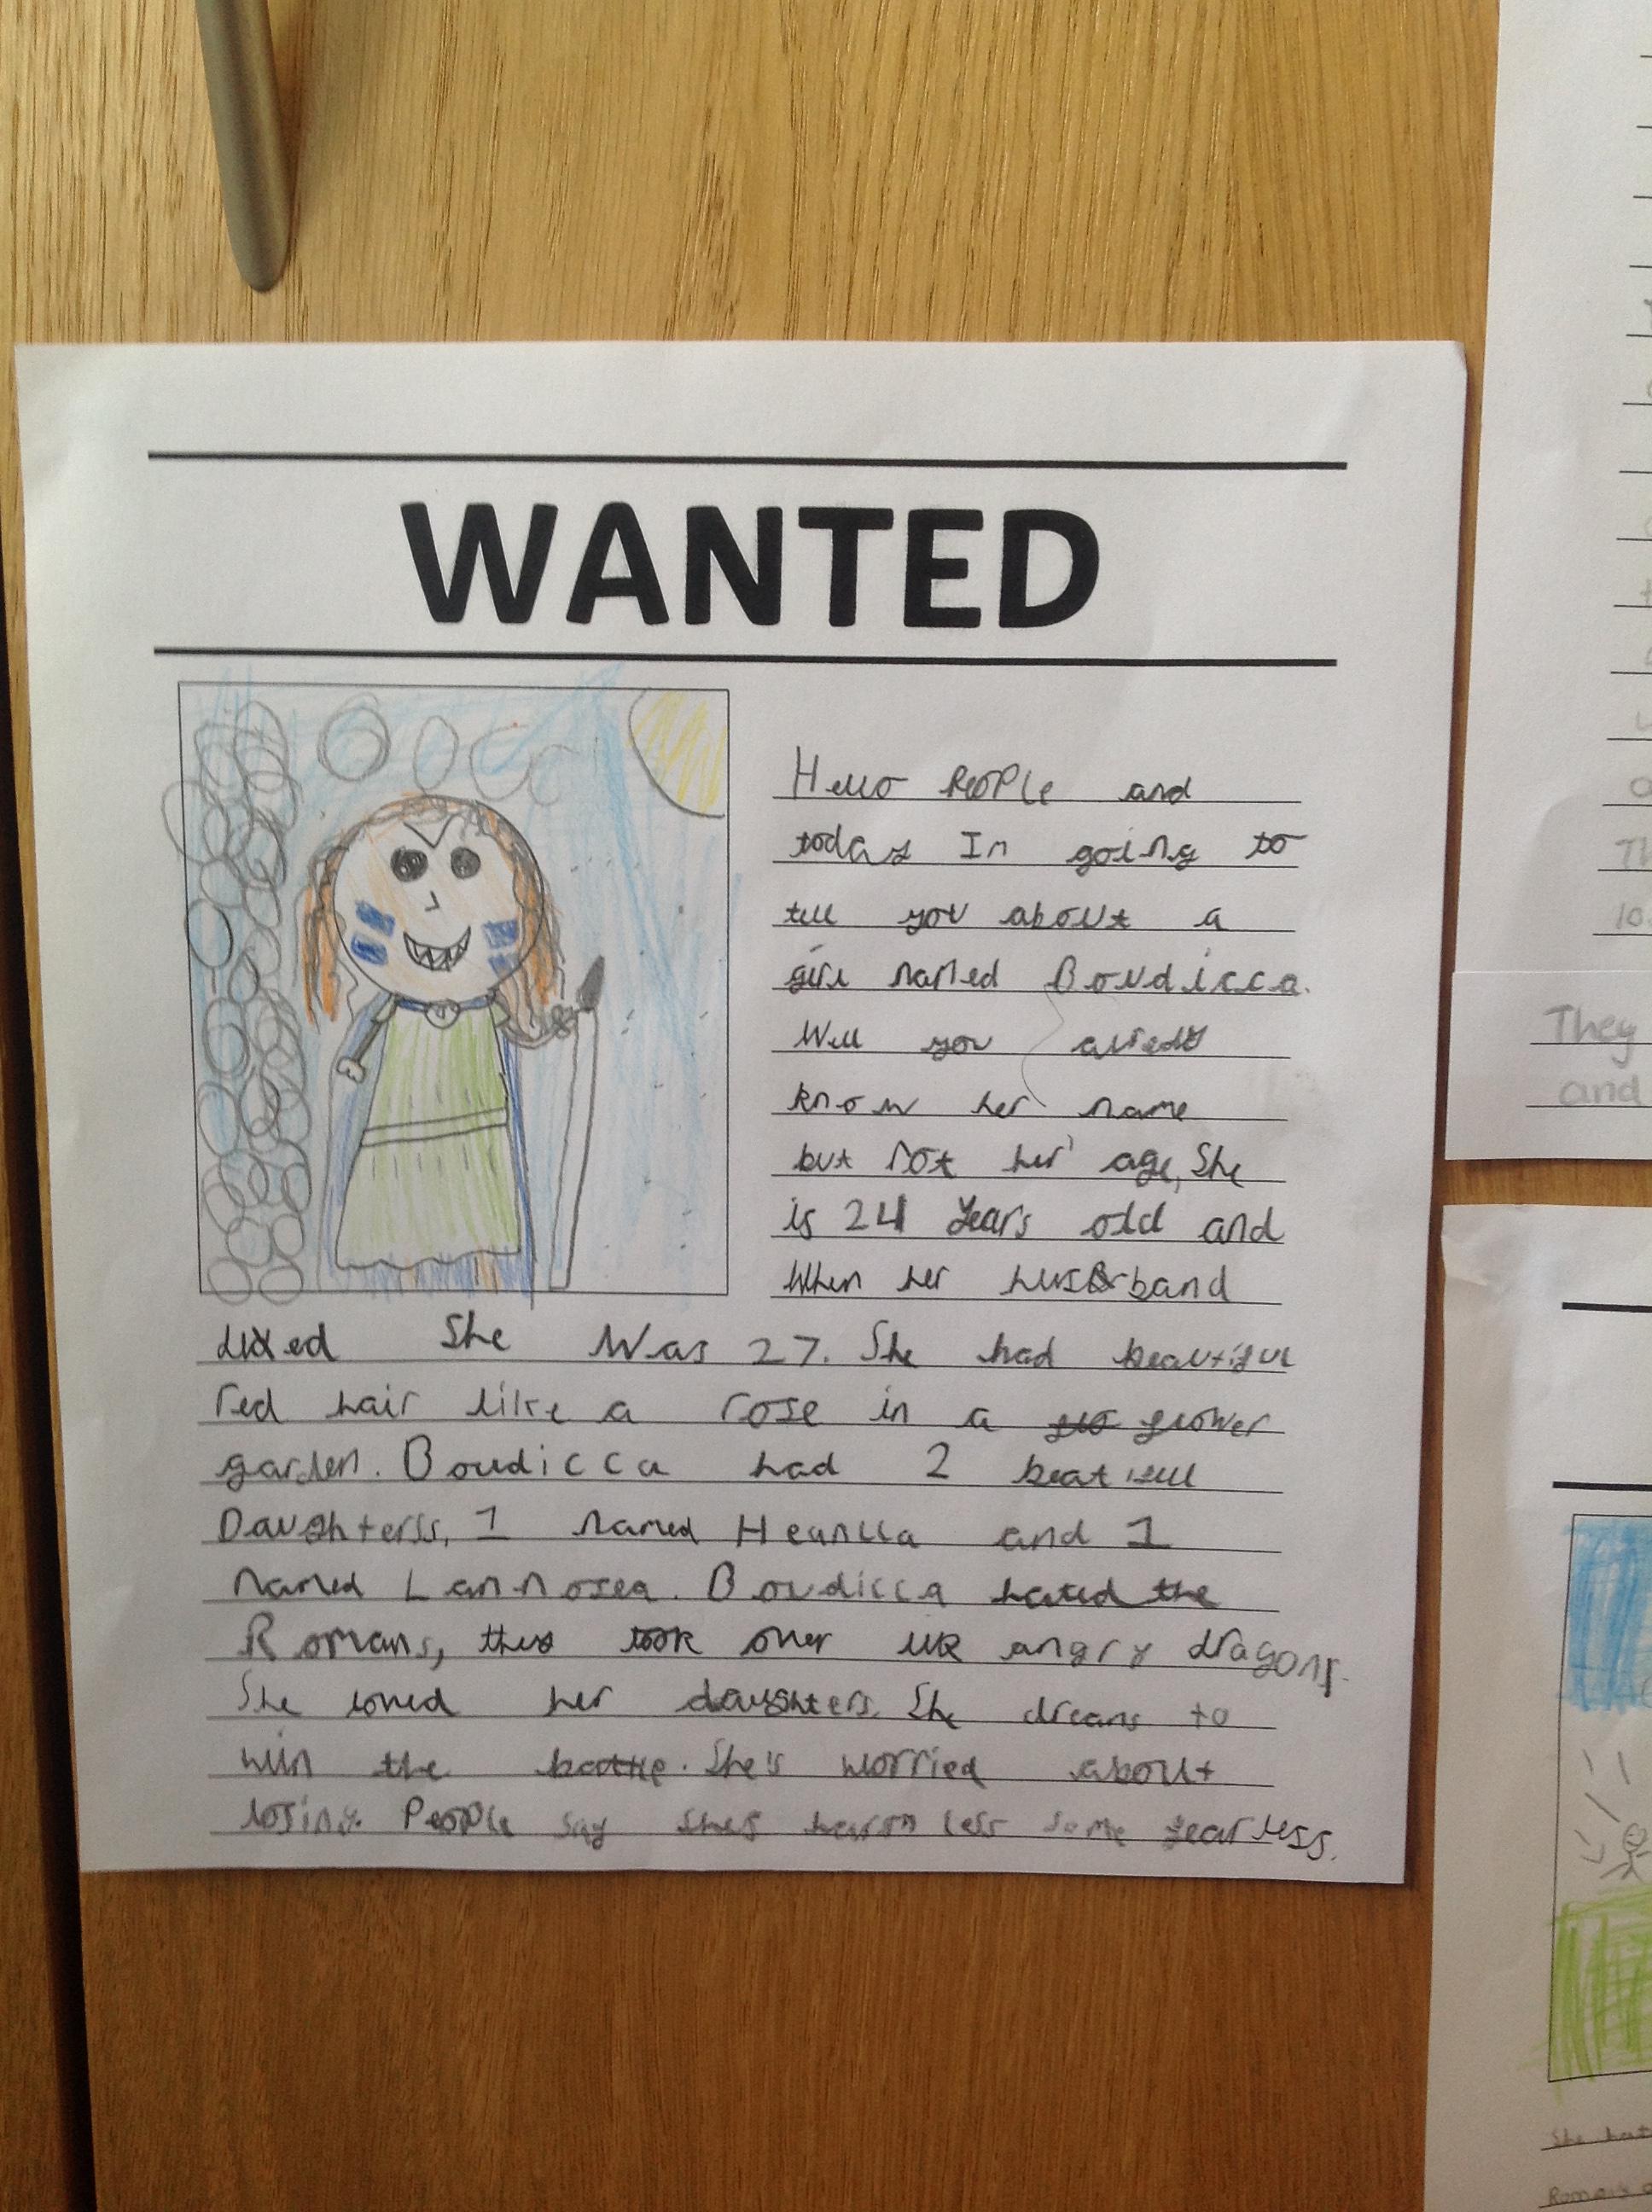 WANTED
Hello People and
today Im going to
tell you about a
girl named Boudicca.
Well you alredy
know her name
but not her age, She
is 24 years old and
When her husband
died She Was 27. She had beautiful
red hair like a rose in a flo flower
garden. Boudicca had 2 beatifull
Daughterss, 1 named Heanua and 1
named Lannosea. Boudicca hated the
Romans, they took over like angry dragons.
She loved her daughters. She dreams to
win the battle. She's worried about
losing. People say shes harmless some fearless.
They
and
She hat
Romans